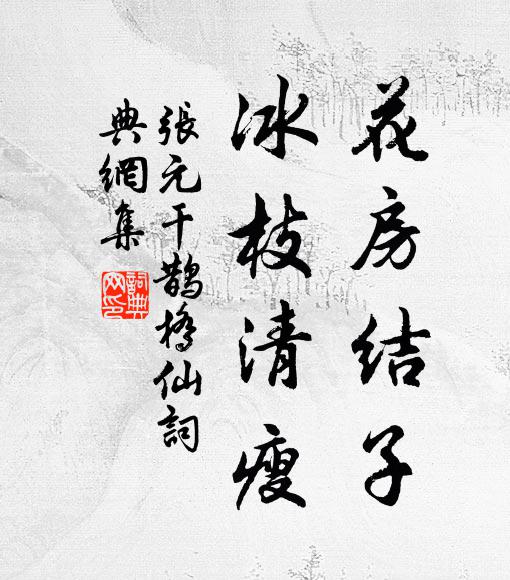 花房结子
冰枝清瘦
張元干鵲橋仙詞
典網集
詞典網印